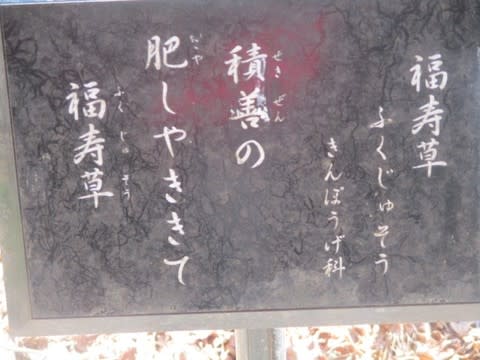 福寿草
ふくじゅそう
きんぽうげ科
積善の
せきぜん
肥しやききて
こや
福寿草
ふくじゅそう